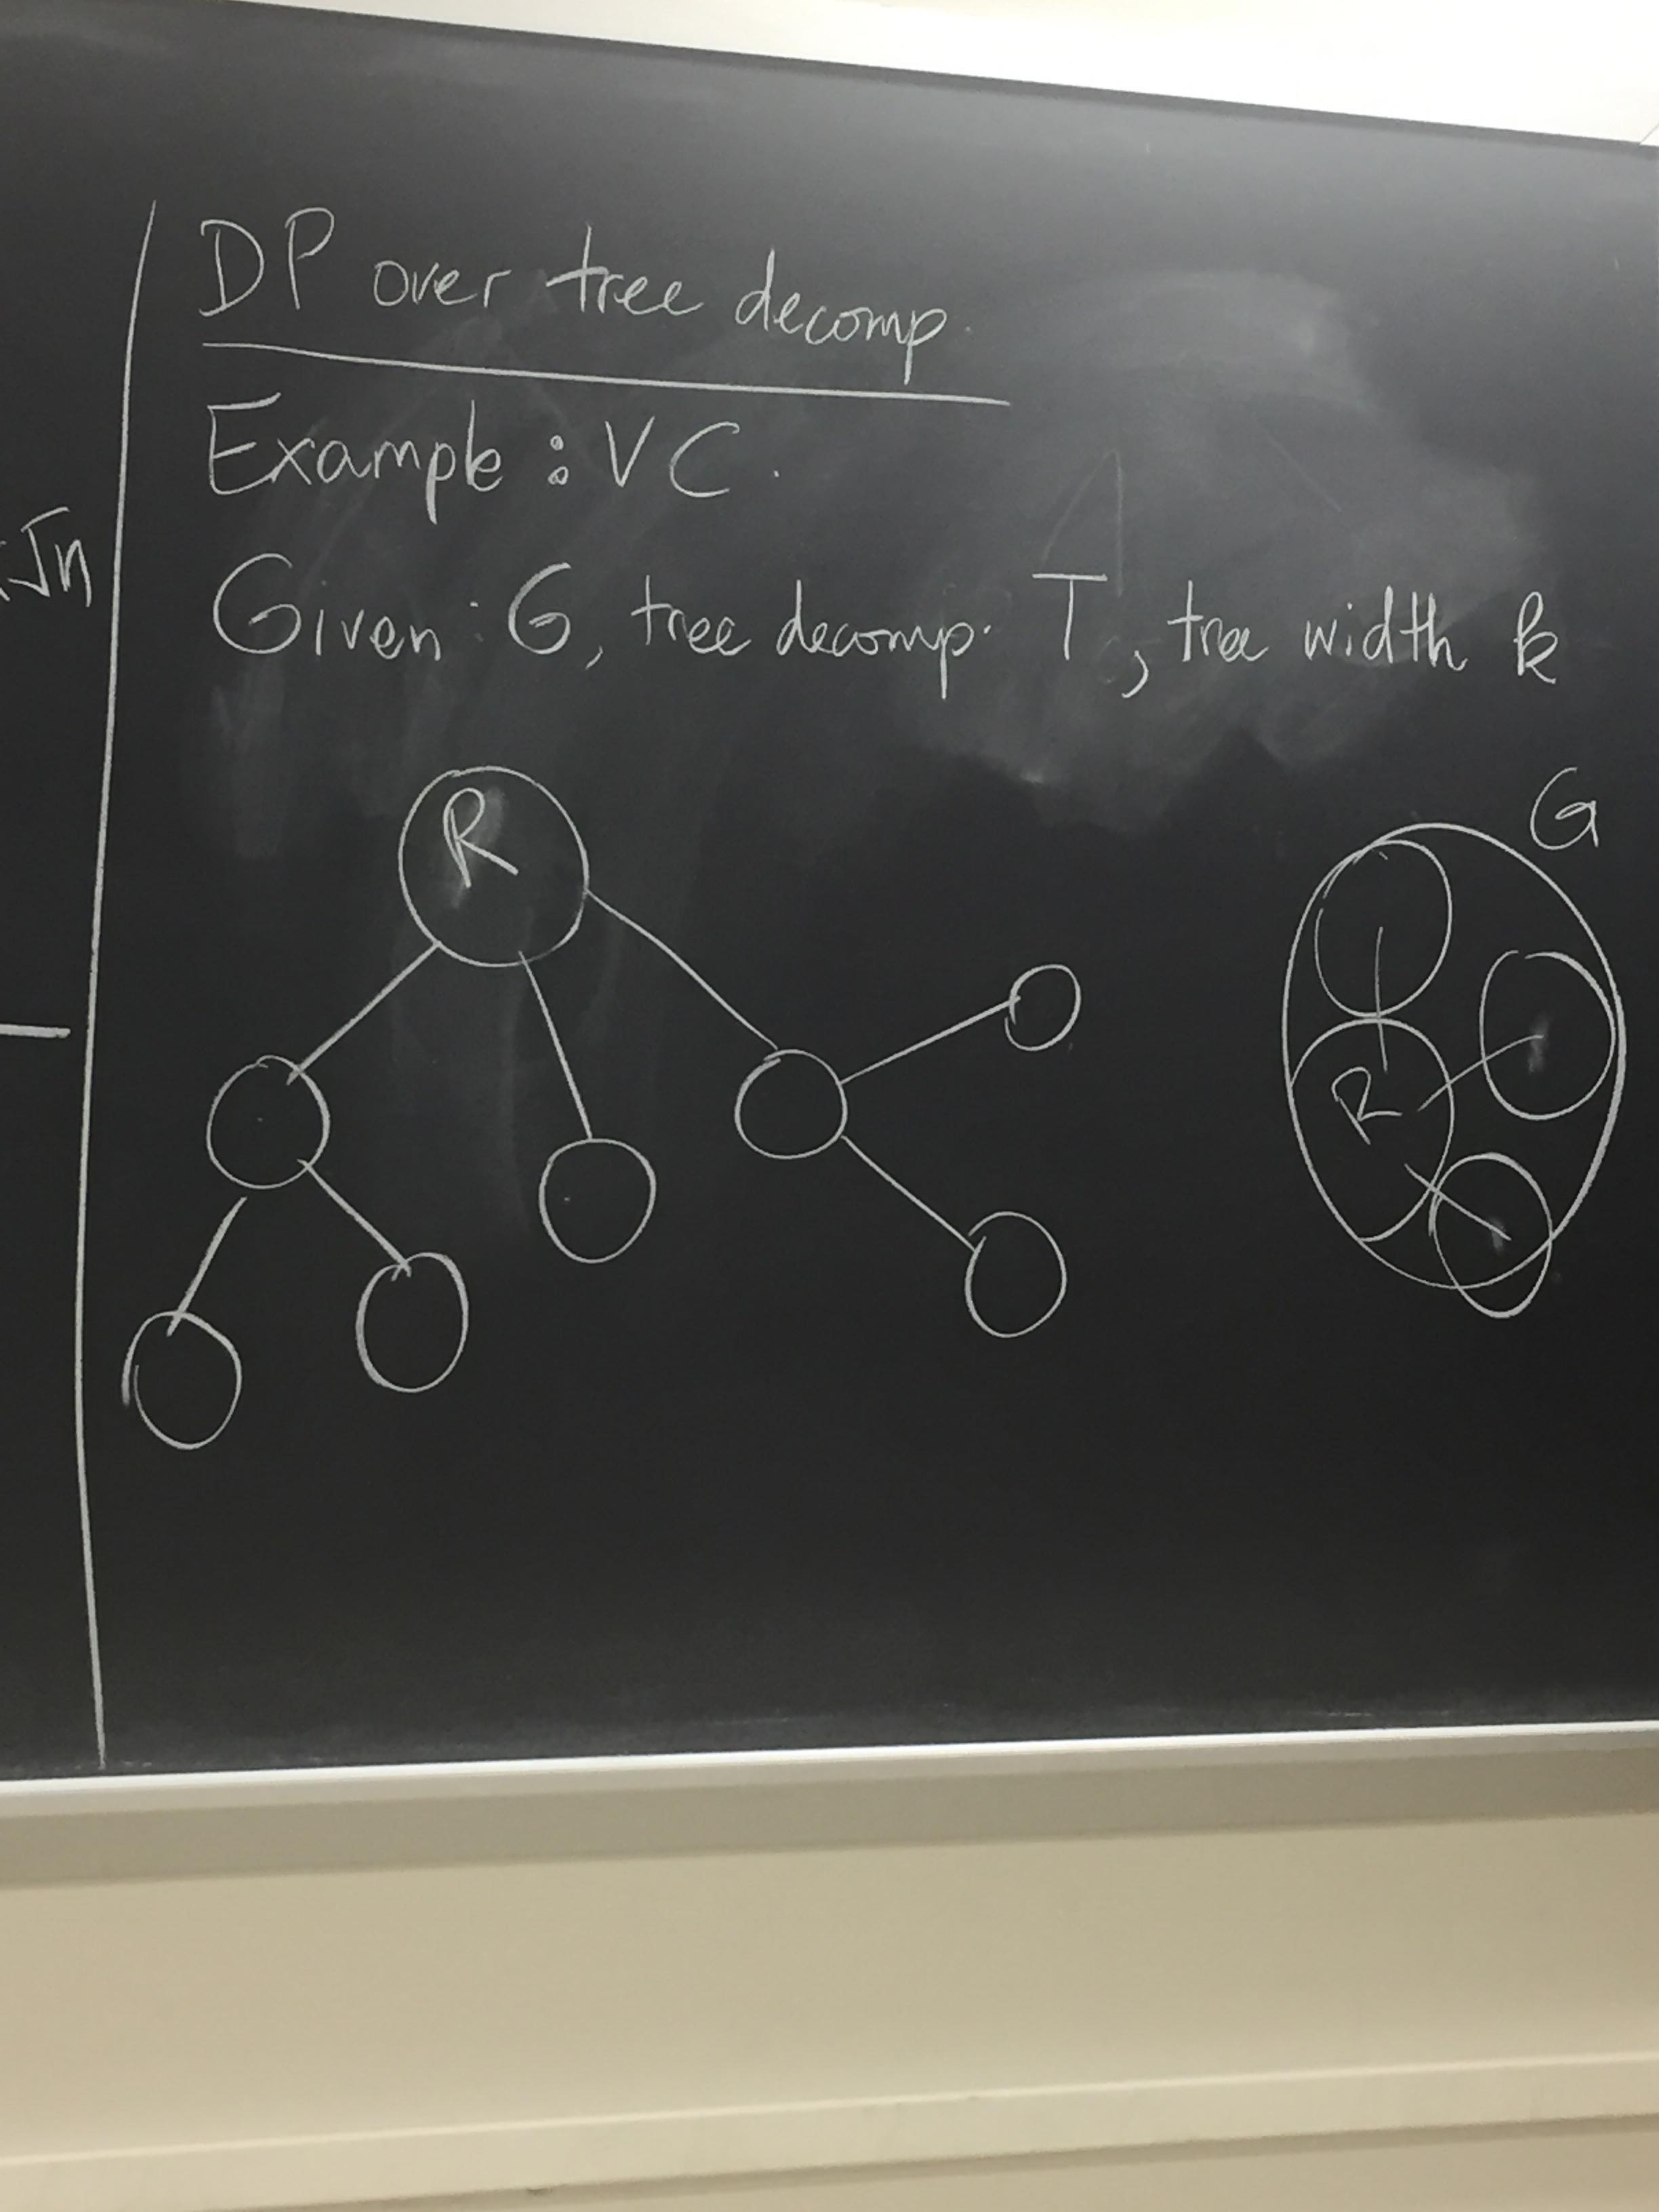 DP over tree decomp.
Example : VC.
√n
Given : G, tree decomp. T, tree width k
G
R
R